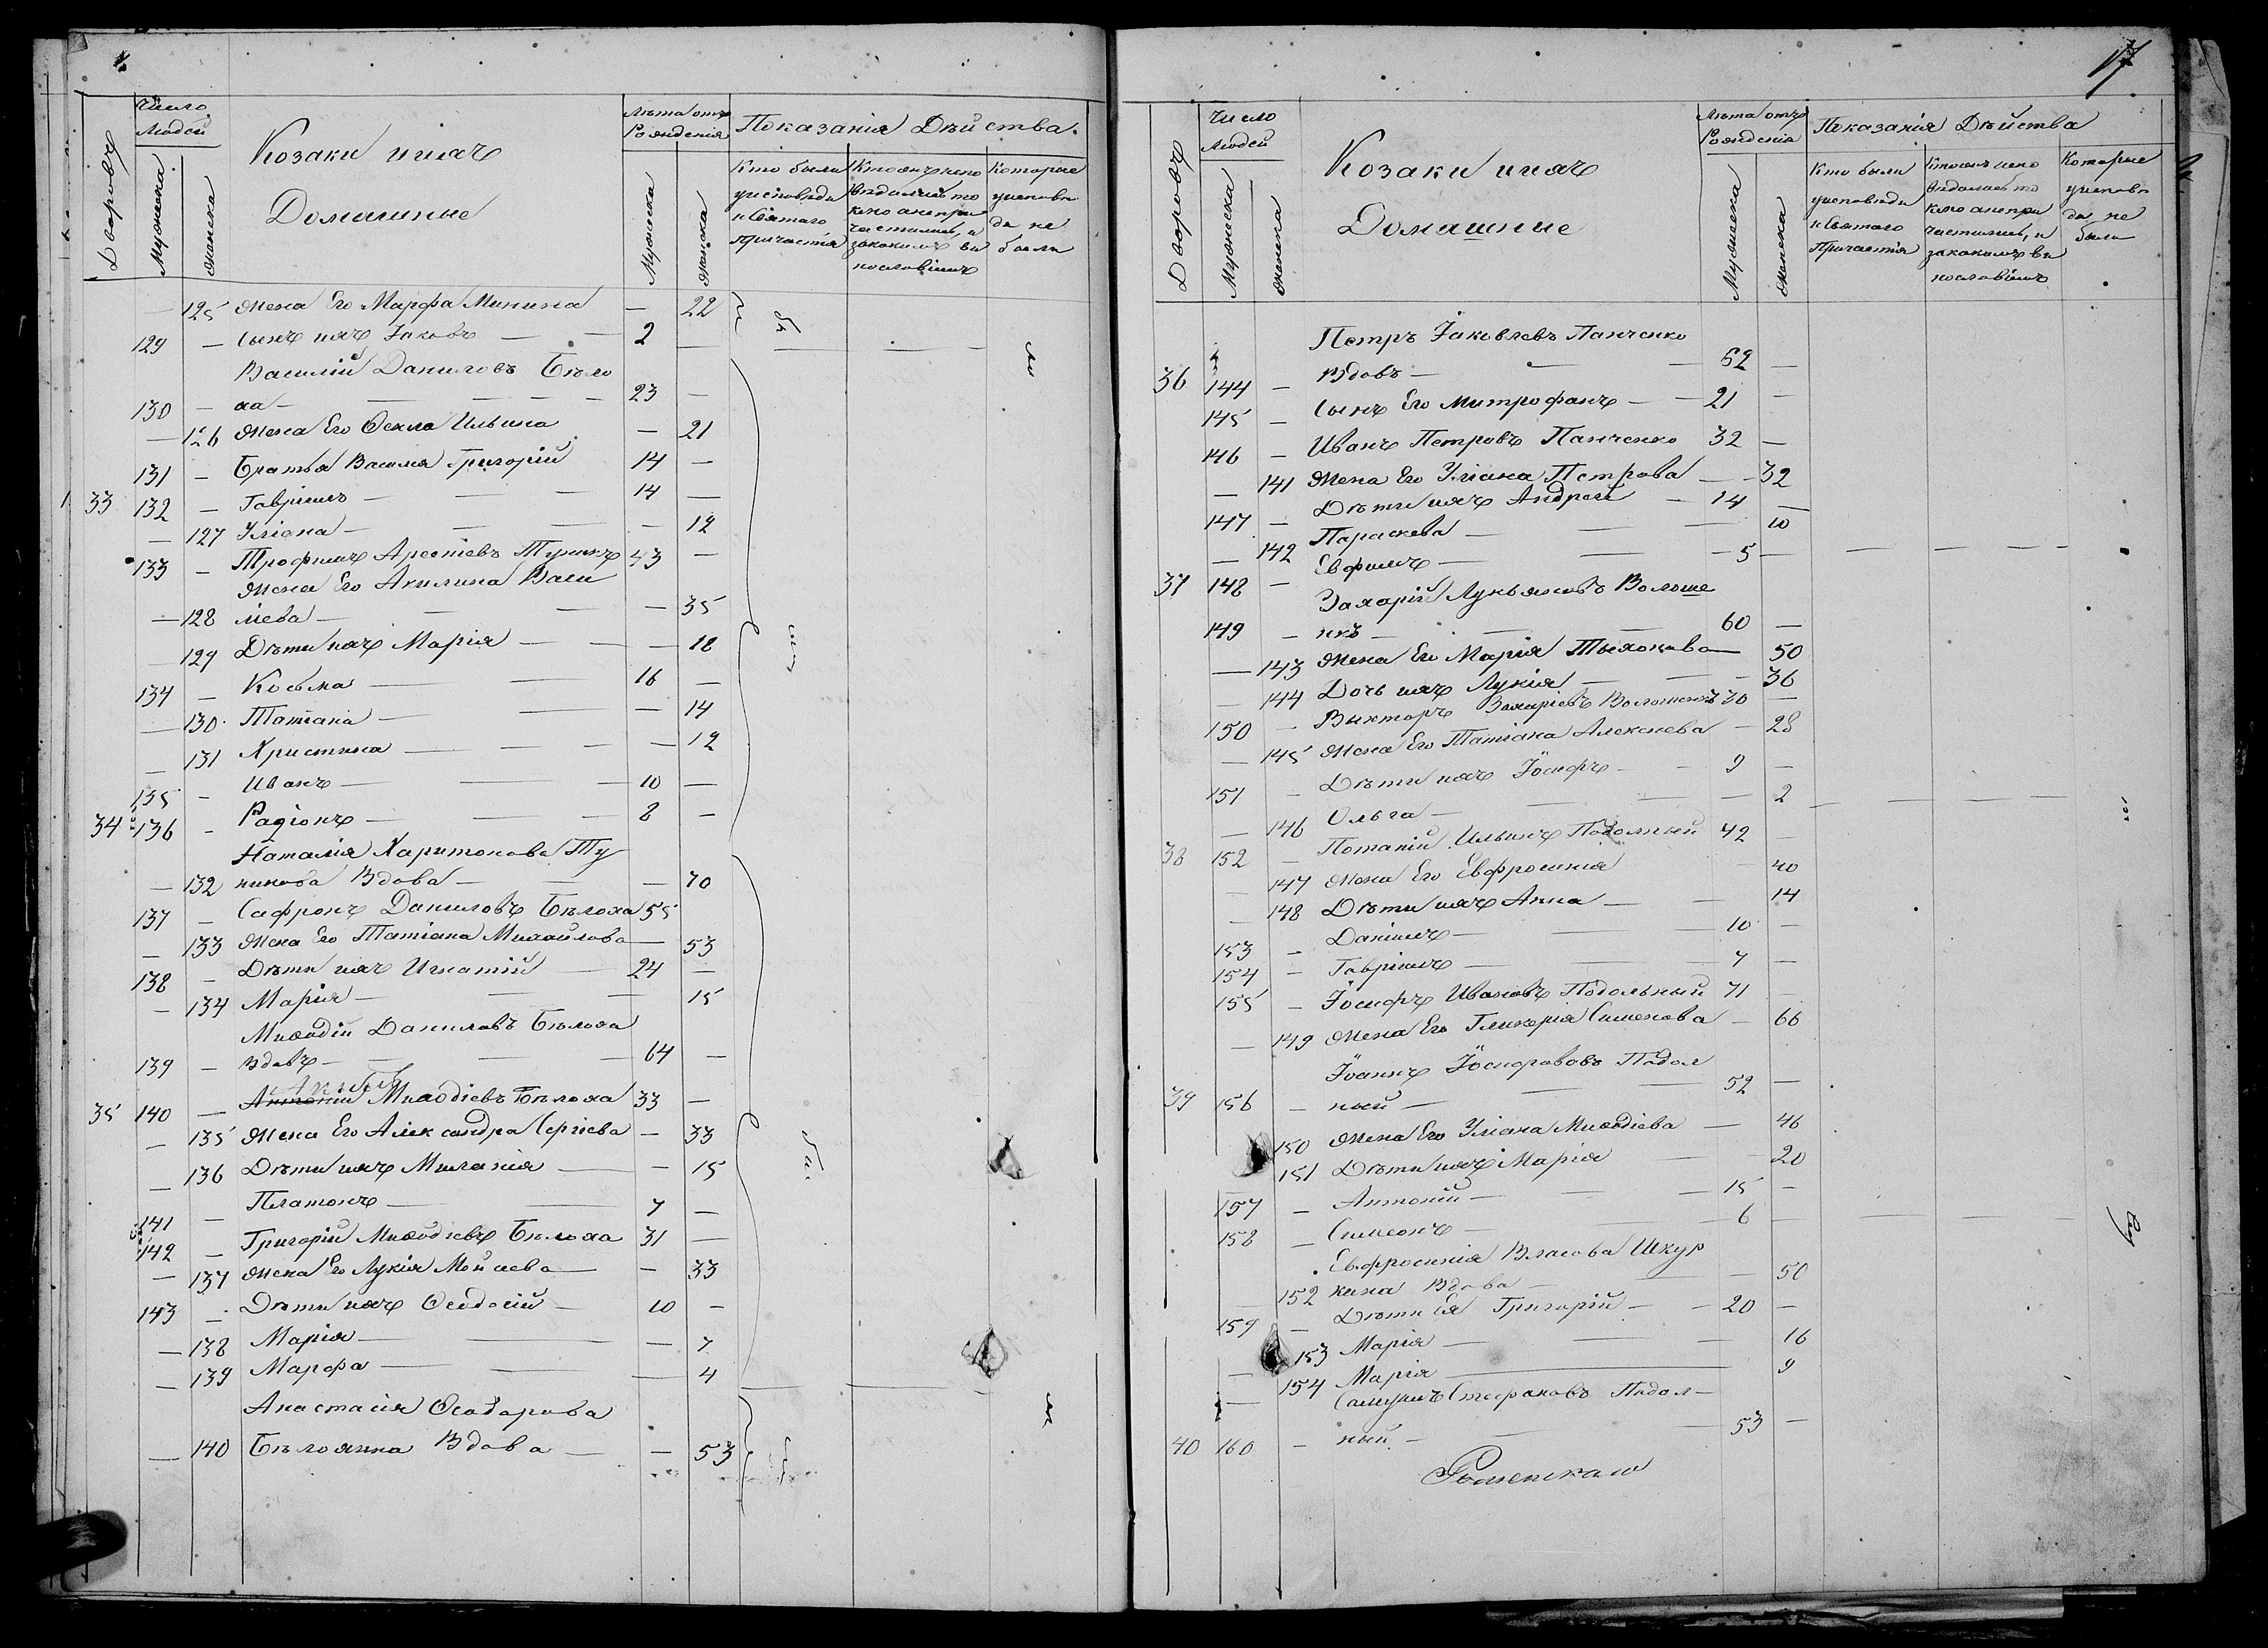 17
Дворовъ
Число
Людей
Мужеска
Женска
Козаки и ихъ
Домашные
Лѣта отъ
Рождения
Мужеска
Женска
Показанія Дѣйства.
Кто были
у исповѣди
и Святаго
Причастія
Которые
у исповѣ
ди не
были
— 125 Жена Его Марфа Минина — 22
129 — Сынъ ихъ Іаковъ — 2 —
Василій Даниловъ Бѣло
130 — ха — 23 —
— 126 Жена Его Ѳекла Ильина — 21
131 — Братья Василия Григорій 14 —
33 132 — Гавріилъ — 14 —
— 127 Уліана — — 12
133 — Трофимъ Арсеніевъ Туникъ 43 —
Жена Его Акилина Васи
— 128 ліева — — 35
— 129 Дѣти ихъ Марія — — 18
134 — Косьма — 16 —
— 130 Татіана — — 14
— 131 Христина — — 12
135 — Иванъ — 10 —
34 136 — Радіонъ — 8 —
Наталія Харитонова Ту
— 132 никова Вдова — — 70
137 — Сафронъ Даниловъ Бѣлоха 55
— 133 Жена Его Татіана Михайлова — 53
138 — Дѣти ихъ Игнатій — 24 —
— 134 Марія — — 15
Миѳодій Даниловъ Бѣлоха
139 — Вдовъ — 64 —
35 140 — Антоній Миѳодіевъ Бѣлоха 33 —
— 135 Жена Его Александра Сергіева — 33
— 136 Дѣти ихъ Миланія — — 15
141 — Платонъ — 7 —
142 — Григорій Миѳодіевъ Бѣлоха 31 —
— 137 Жена Его Лукія Мойсеева — 33
143 — Дѣти ихъ Ѳеодосій — 10 —
— 138 Марія — — 7
— 139 Марфа — — 4
Анастасія Ѳеодорова
— 140 Бѣлохина Вдова — — 53
Дворовъ
Число
Людей
Мужеска
Женска
Козаки и ихъ
Домашние
Лѣта отъ
Рожденія
Мужеска
Женска
Показанія Дѣйства
Кто были
у исповѣди
и Святаго
Причастія
Которые
у исповѣ
ди не
были
Петръ Іаковлевъ Панченко
36 144 — Вдовъ — 62 —
145 — Сынъ Его Митрофанъ — 21 —
146 — Иванъ Петровъ Панченко 32 —
— 141 Жена Его Уліана Петрова — 32
147 — Дѣти ихъ Андрей — 14 —
— 142 Параскева — 10
37 148 — Евфимъ — 5 —
Захарій Лукьяновъ Волоше
149 — нкъ — 60 —
— 143 Жена Его Марія Тыхонова — 50
— 144 Дочь ихъ Лукія — — 36
150 — Викторъ Захаріевъ 30 —
— 145 Жена Его Татіана Алексѣева — 28
151 — Дѣти ихъ Іосифъ — 9 —
— 146 Ольга — — 2
38 152 — Потапій Ильинъ Подолный 42 —
— 147 Жена Его Евфросинія — 40
— 148 Дѣти ихъ Анна — — 14
153 — Даніилъ — 10 —
154 — Гавріилъ — 7 —
155 — Іосифъ Ивановъ Подольный 71 —
— 149 Жена Его Гликерія Симонова — 66
Іоаннъ Іосифововъ Подол
39 156 — ный — 52 —
150 Жена Его Уліана Миѳодіева — 46
151 Дѣти ихъ Марія — 20
157 — Антоній — 15 —
158 — Симеонъ — 6 —
Евфросинія Власова Шкур
— 152 кина Вдова — — 50
159 — Дѣти Ея Григорій — 20 —
— 153 Марія — 16
— 154 Марія — 9
Самуилъ Стефановъ Подол-
40 160 — ный. — 53 —